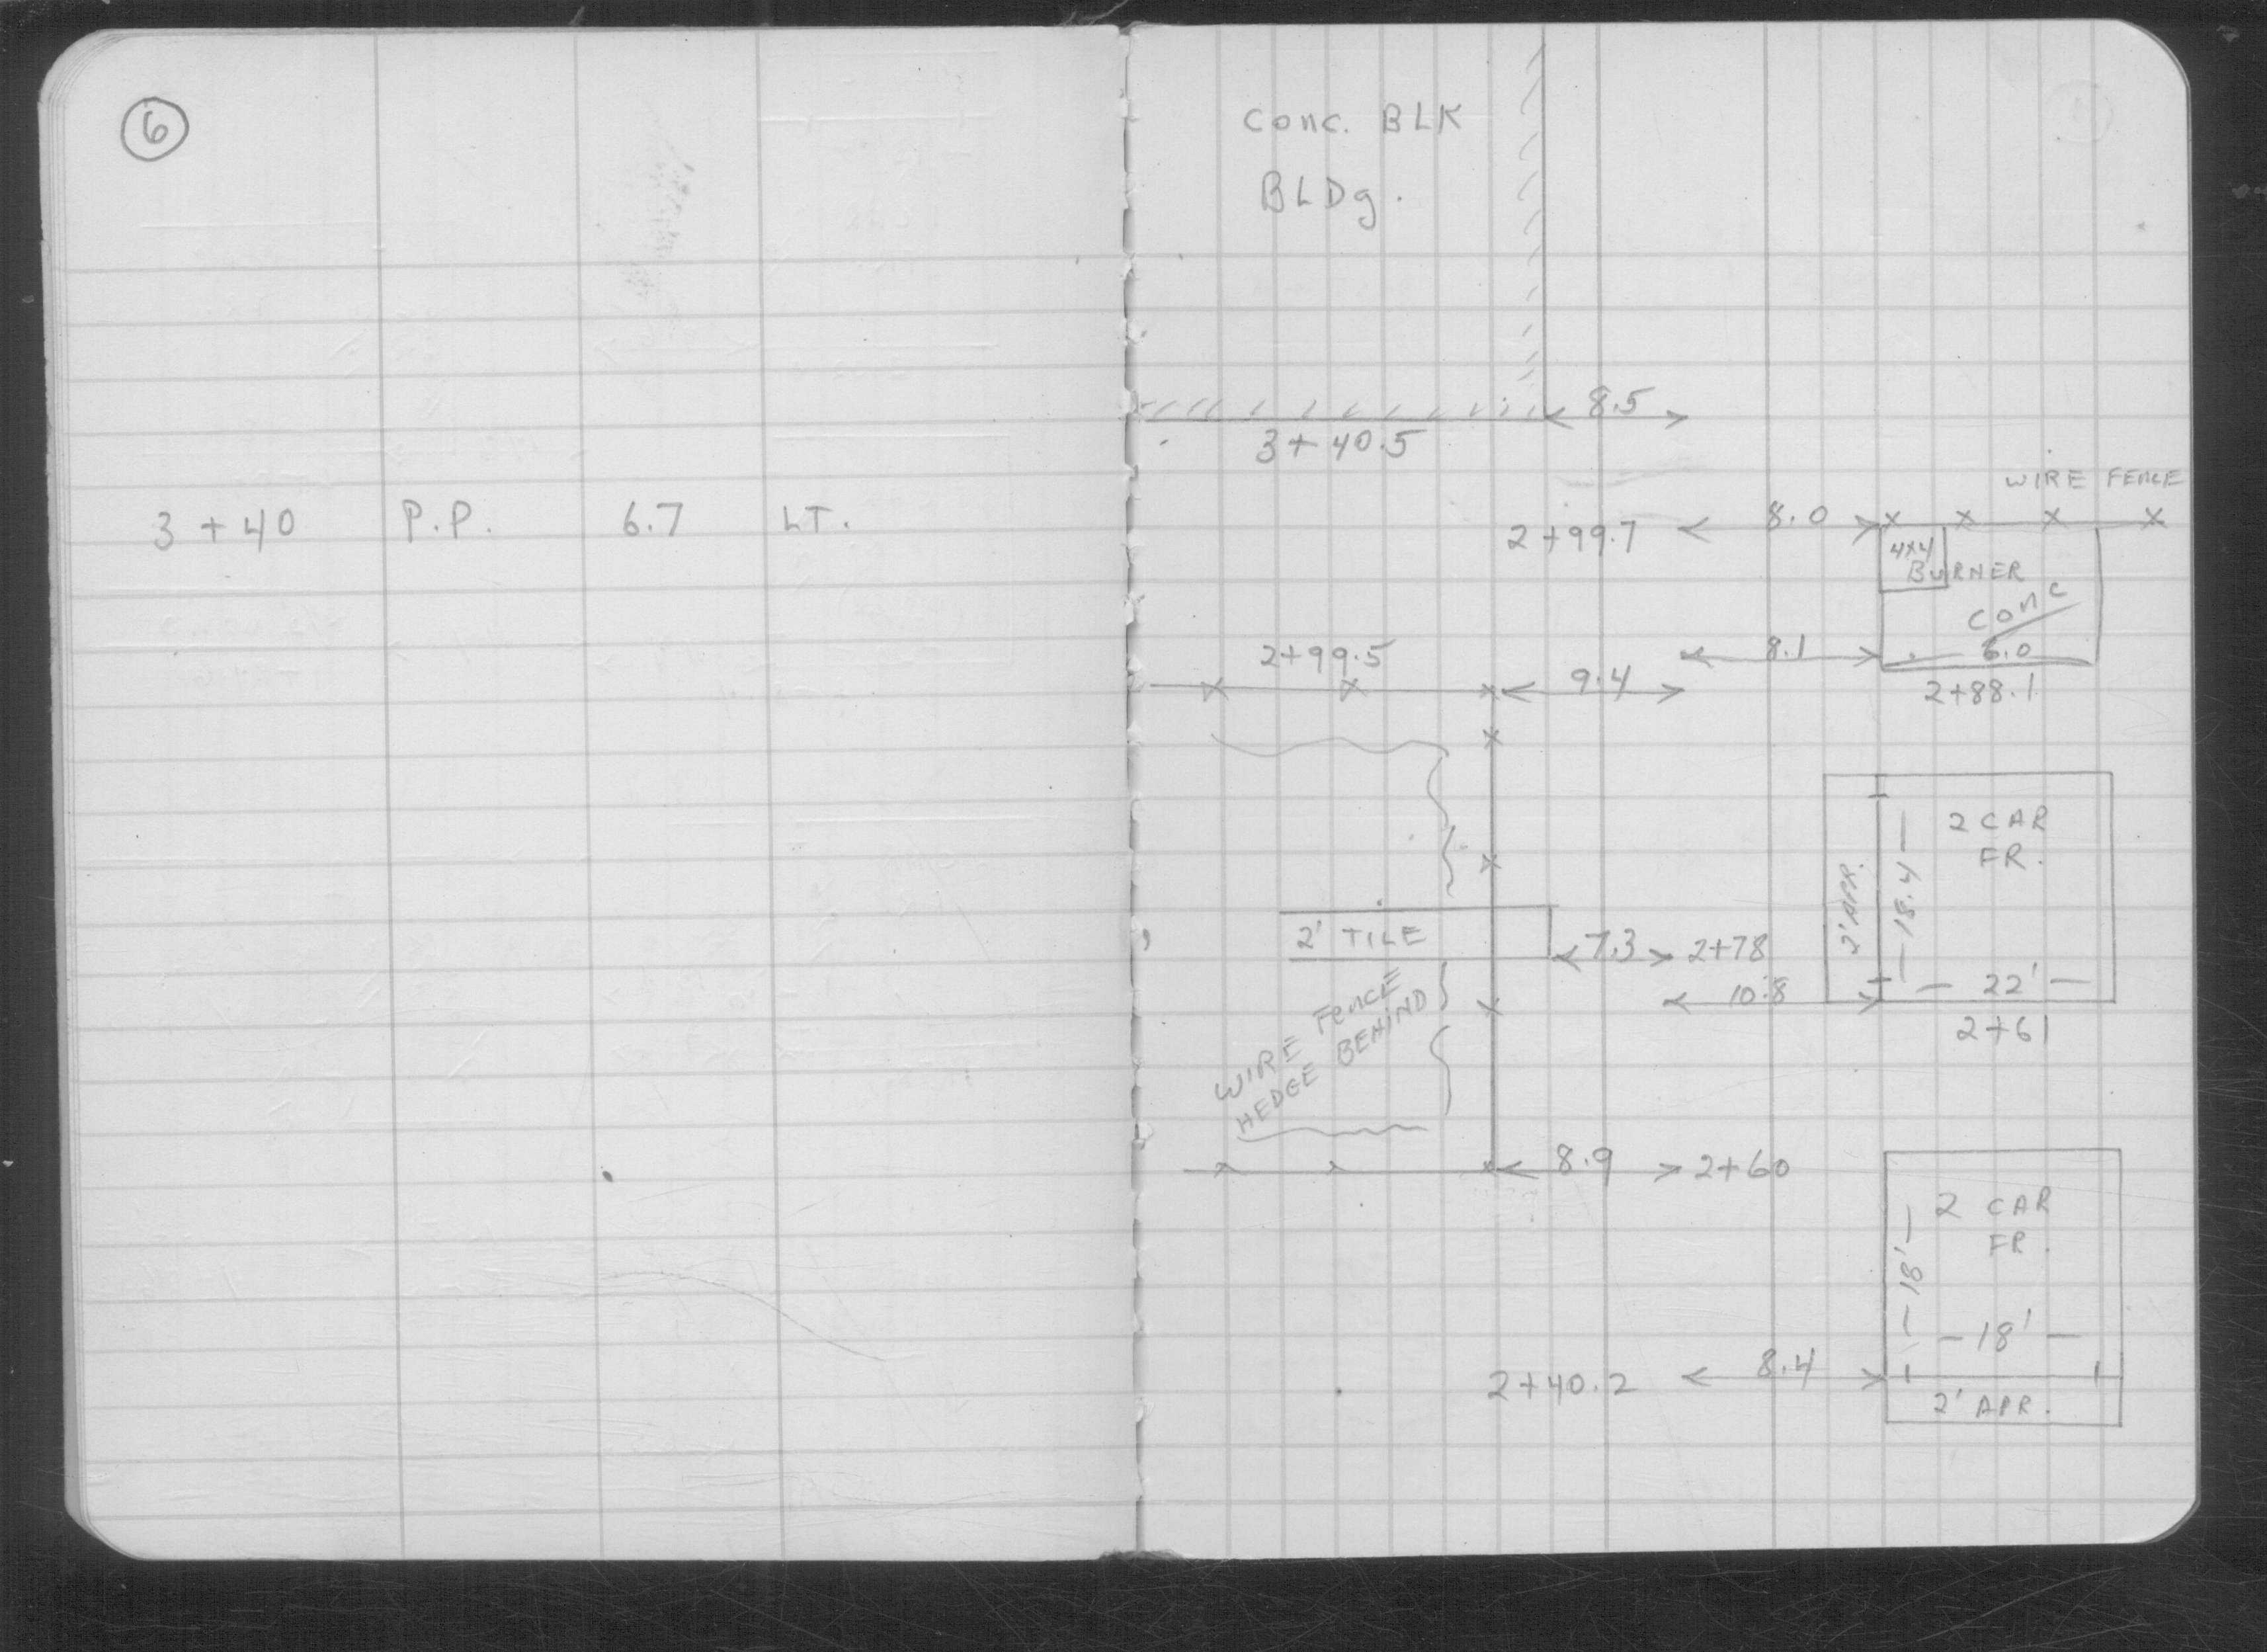 6
3+40 P.P. 6.7 LT.
Conc. BLK
BLDg.
8.5
3+40.5
WIRE FENCE
2+99.7 8.0
4x4
BURNER
CONC
2+99.5
8.1 6.0
9.4
2+88.1
2 CAR
FR.
2' APR.
18.4
2' TILE
7.3 2+78
10.8 22'
2+61
WIRE FENCE
HEDGE BEHIND
8.9 2+60
2 CAR
FR.
18'
18'
2+40.2 8.4
2' APR.